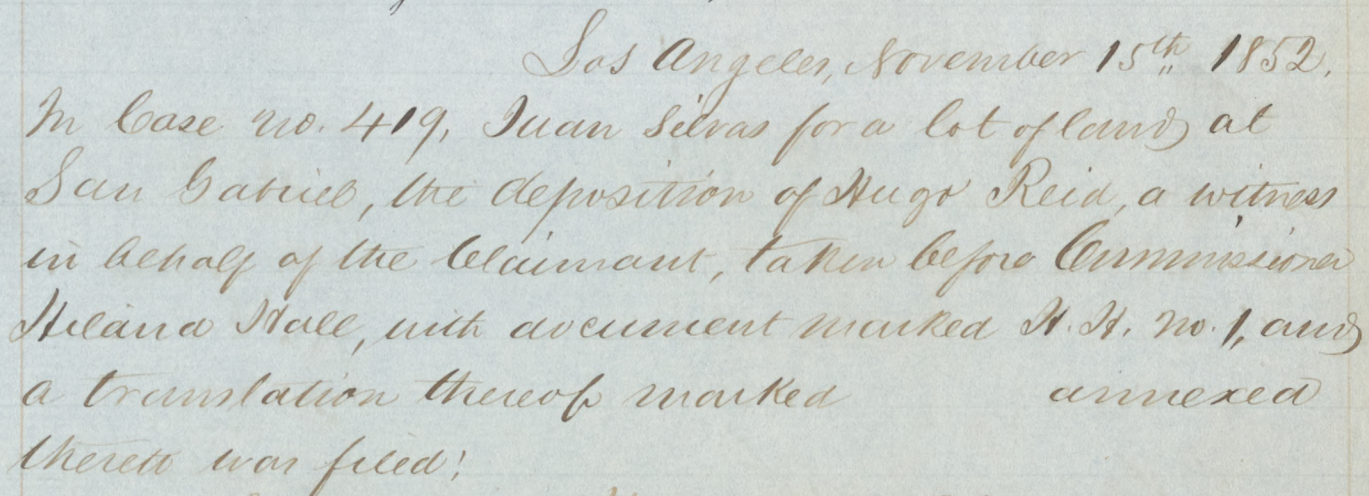 Los Angeles, November 15th, 1852.
In Case no. 419, Juan Silvas for a lot of land at
San Gabriel, the deposition of Hugo Reid, a witness
in behalf of the Claimant, taken before Commissioner
Hiland Hall, with document marked H. H. no. 1, and
a translation thereof marked annexed
thereto was filed: